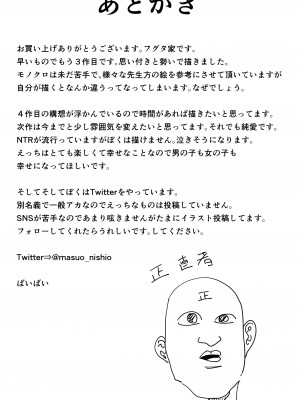 あとがき
お買い上げありがとうございます。フグタ家です。
早いものでもう３作目です。思い付きと勢いで描きました。
モノクロは未だ苦手で、様々な先生方の絵を参考にさせて頂いていますが
自分が描くとなんか違うってなってしまいます。なぜでしょう。
４作目の構想が浮かんでいるので時間があれば描きたいと思ってます。
次作は今までと少し雰囲気を変えたいと思ってます。それでも純愛です。
NTRが流行っていますがぼくは描けません。泣きそうになります。
えっちはとても楽しくて幸せなことなので男の子も女の子も
幸せになってほしいです。
そしてそしてぼくはTwitterをやっています。
別名義で一般アカなのでえっちなものは投稿していません。
SNSが苦手なのであまり呟きませんがたまにイラスト投稿してます。
フォローしてくれたらうれしいです。してください。
Twitter⇒@masuo_nishio
ばいばい
正直者
正